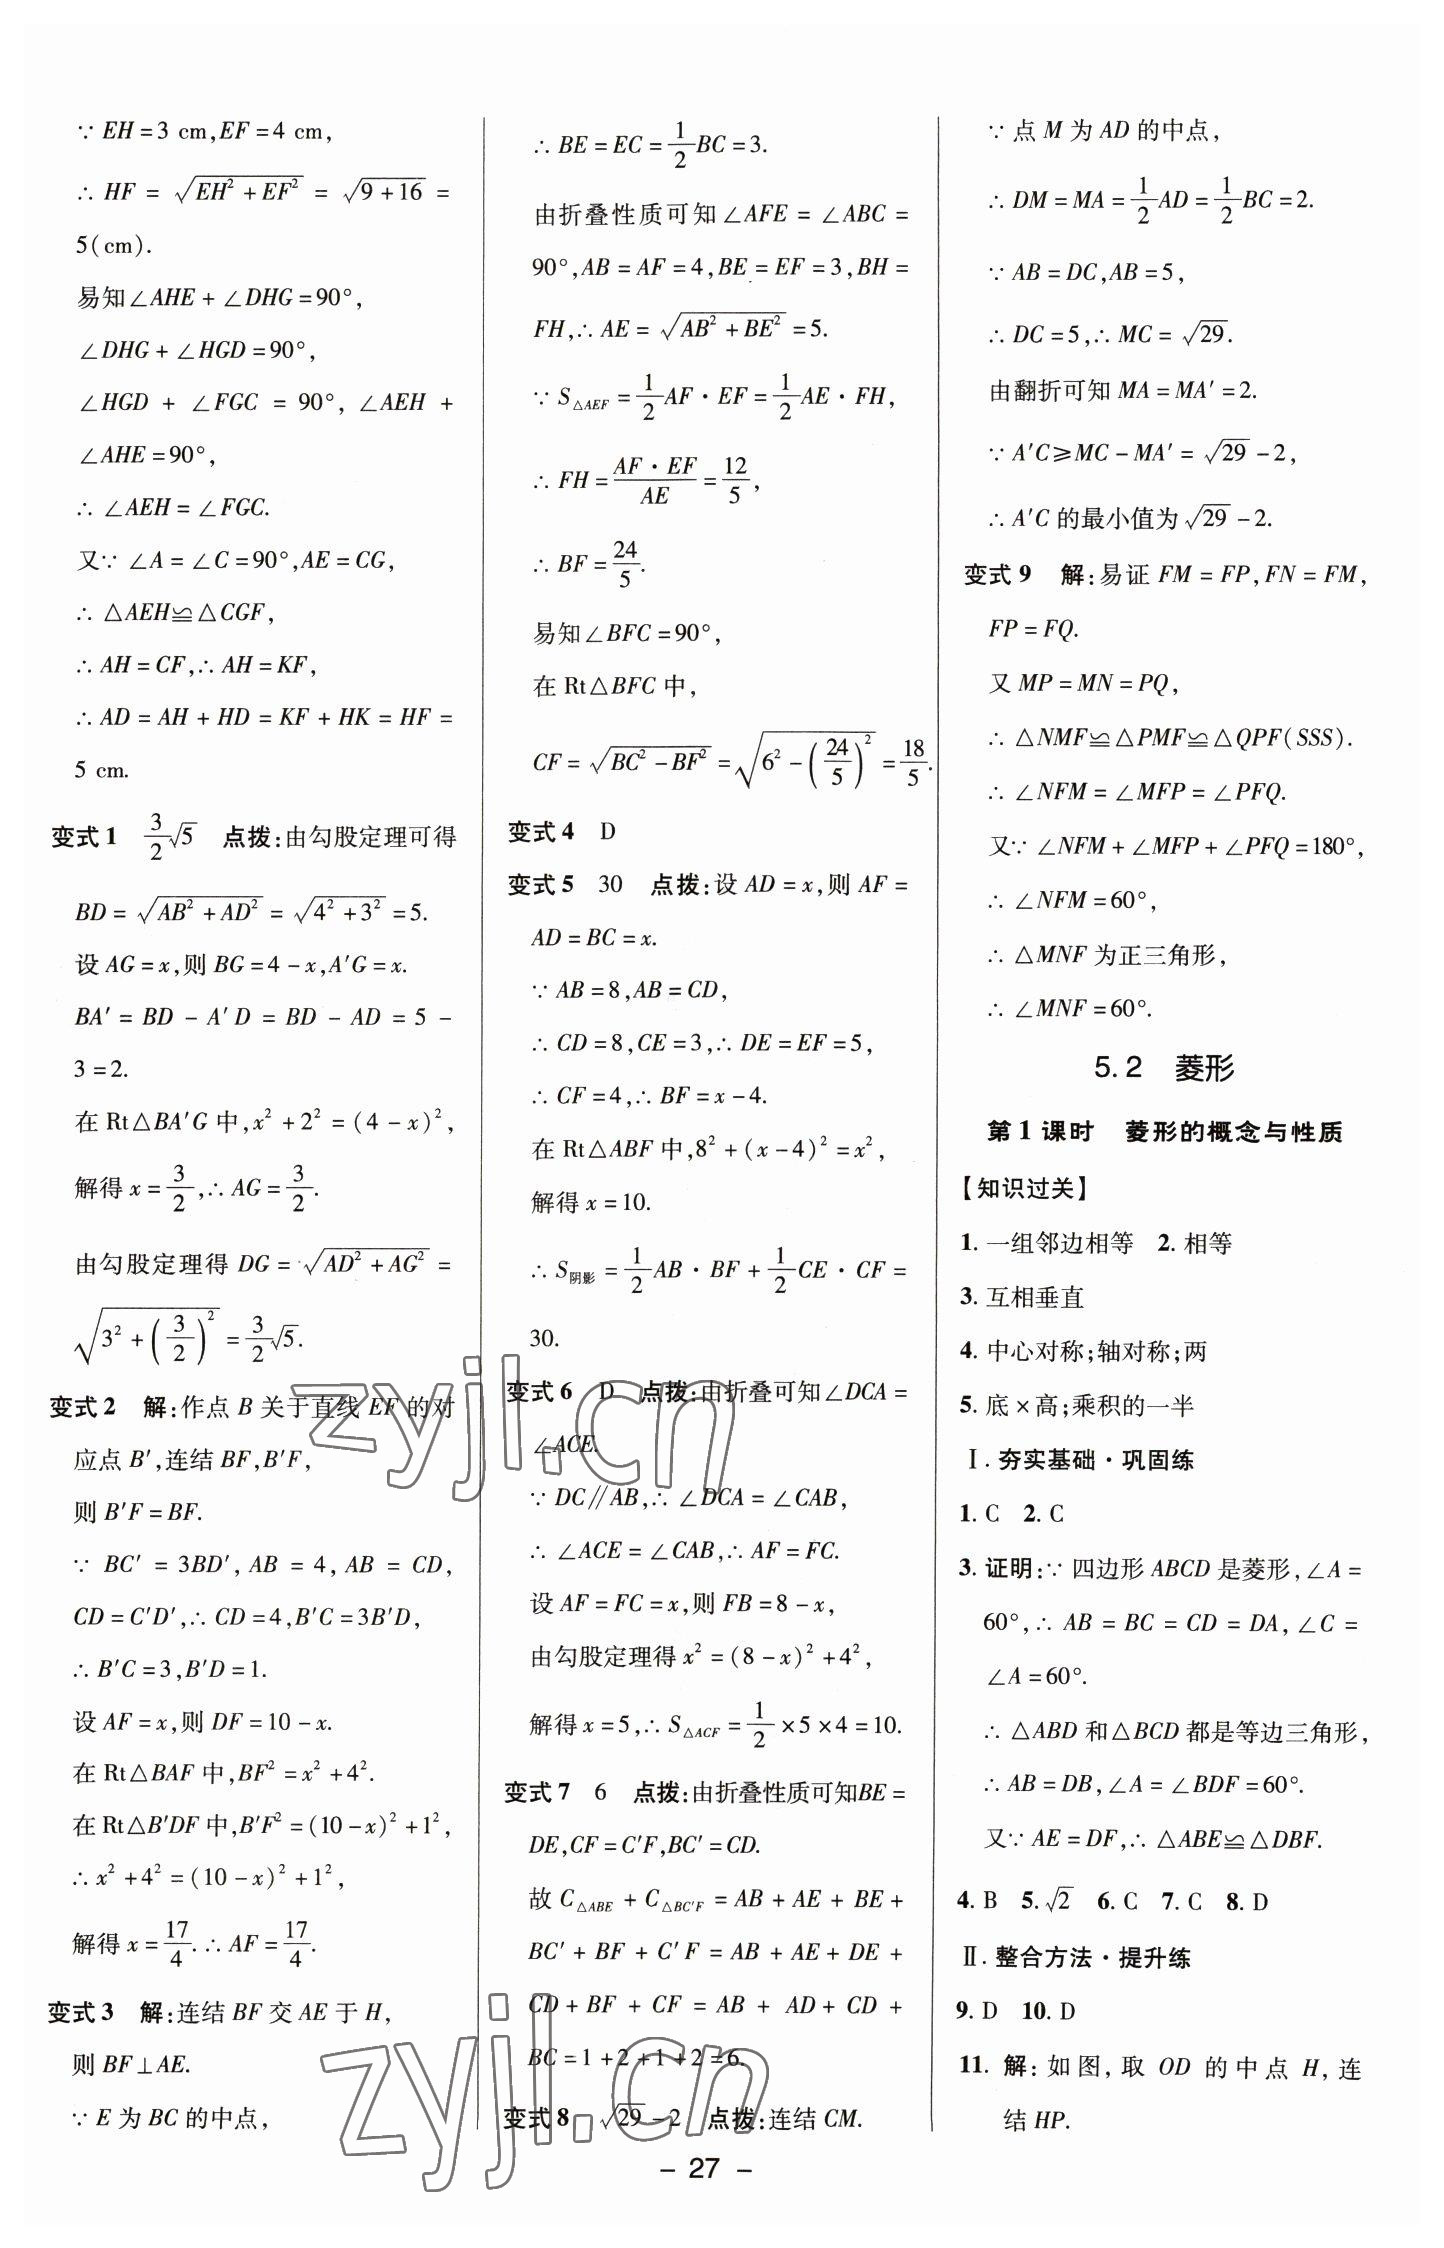 ∵ EH=3 cm,EF=4 cm,
∴ HF = √(EH²+EF²) = √(9+16) =
5(cm).
易知∠AHE+∠DHG=90°,
∠DHG+∠HGD=90°,
∠HGD + ∠FGC = 90°, ∠AEH +
∠AHE=90°,
∴ ∠AEH=∠FGC.
又∵ ∠A=∠C=90°,AE=CG,
∴ △AEH≌△CGF,
∴ AH=CF,∴ AH=KF,
∴ AD=AH+HD=KF+HK=HF=
5 cm.
变式1 3/2√5 点拨:由勾股定理可得
BD=√(AB²+AD²)=√(4²+3²)=5.
设AG=x,则BG=4-x,A′G=x.
BA′=BD-A′D=BD-AD=5-
3=2.
在Rt△BA′G中,x²+2²=(4-x)²,
解得x=3/2,∴ AG=3/2.
由勾股定理得DG=√(AD²+AG²)=
√(3²+(3/2)²)=3/2√5.
变式2 解:作点B关于直线EF的对
应点B′,连结BF,B′F,
则B′F=BF.
∵ BC′=3BD′, AB=4, AB=CD,
CD=C′D′,∴ CD=4,B′C=3B′D,
∴ B′C=3,B′D=1.
设AF=x,则DF=10-x.
在Rt△BAF中,BF²=x²+4².
在Rt△B′DF中,B′F²=(10-x)²+1²,
∴ x²+4²=(10-x)²+1²,
解得x=17/4.∴ AF=17/4.
变式3 解:连结BF交AE于H,
则BF⊥AE.
∵ E为BC的中点,
∴ BE=EC=1/2BC=3.
由折叠性质可知∠AFE=∠ABC=
90°,AB=AF=4,BE=EF=3,BH=
FH,∴ AE=√(AB²+BE²)=5.
∵ S△AEF=1/2AF·EF=1/2AE·FH,
∴ FH=(AF·EF)/AE=12/5,
∴ BF=24/5.
易知∠BFC=90°,
在Rt△BFC中,
CF=√(BC²-BF²)=√(6²-(24/5)²)=18/5.
变式4 D
变式5 30 点拨:设AD=x,则AF=
AD=BC=x.
∵ AB=8,AB=CD,
∴ CD=8,CE=3,∴ DE=EF=5,
∴ CF=4,∴ BF=x-4.
在Rt△ABF中,8²+(x-4)²=x²,
解得x=10.
∴ S阴影=1/2AB·BF+1/2CE·CF=
30.
变式6 D 点拨:由折叠可知∠DCA=
∠ACE.
∵ DC∥AB,∴ ∠DCA=∠CAB,
∴ ∠ACE=∠CAB,∴ AF=FC.
设AF=FC=x,则FB=8-x,
由勾股定理得x²=(8-x)²+4²,
解得x=5,∴ S△ACF=1/2×5×4=10.
变式7 6 点拨:由折叠性质可知BE=
DE,CF=C′F,BC′=CD.
故C△ABE+C△BC′F=AB+AE+BE+
BC′+BF+C′F=AB+AE+DE+
CD+BF+CF=AB+AD+CD+
BC=1+2+1+2=6.
变式8 √29-2 点拨:连结CM.
∵ 点M为AD的中点,
∴ DM=MA=1/2AD=1/2BC=2.
∵ AB=DC,AB=5,
∴ DC=5,∴ MC=√29.
由翻折可知MA=MA′=2.
∵ A′C≥MC-MA′=√29-2,
∴ A′C的最小值为√29-2.
变式9 解:易证FM=FP,FN=FM,
FP=FQ.
又MP=MN=PQ,
∴ △NMF≌△PMF≌△QPF(SSS).
∴ ∠NFM=∠MFP=∠PFQ.
又∵ ∠NFM+∠MFP+∠PFQ=180°,
∴ ∠NFM=60°,
∴ △MNF为正三角形,
∴ ∠MNF=60°.
5.2 菱形
第1课时 菱形的概念与性质
【知识过关】
1. 一组邻边相等 2. 相等
3. 互相垂直
4. 中心对称;轴对称;两
5. 底×高;乘积的一半
Ⅰ. 夯实基础·巩固练
1. C 2. C
3. 证明:∵ 四边形ABCD是菱形,∠A=
60°,∴ AB=BC=CD=DA,∠C=
∠A=60°.
∴ △ABD和△BCD都是等边三角形,
∴ AB=DB,∠A=∠BDF=60°.
又∵ AE=DF,∴ △ABE≌△DBF.
4. B 5. √2 6. C 7. C 8. D
Ⅱ. 整合方法·提升练
9. D 10. D
11. 解:如图,取OD的中点H,连
结HP.
- 27 -
zyjl.cn
zyjl.cn